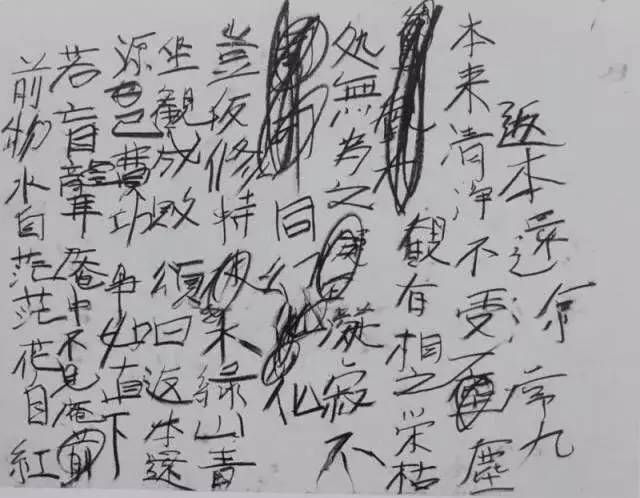 返本還九
本来清浄不受一塵
観有相之栄枯
処無為之凝寂不
同幻化
豈仮修持水緑山青
坐観成敗頌曰返本還
源已費功争如直下
若盲聾庵中不見庵
前物水自茫茫花自紅